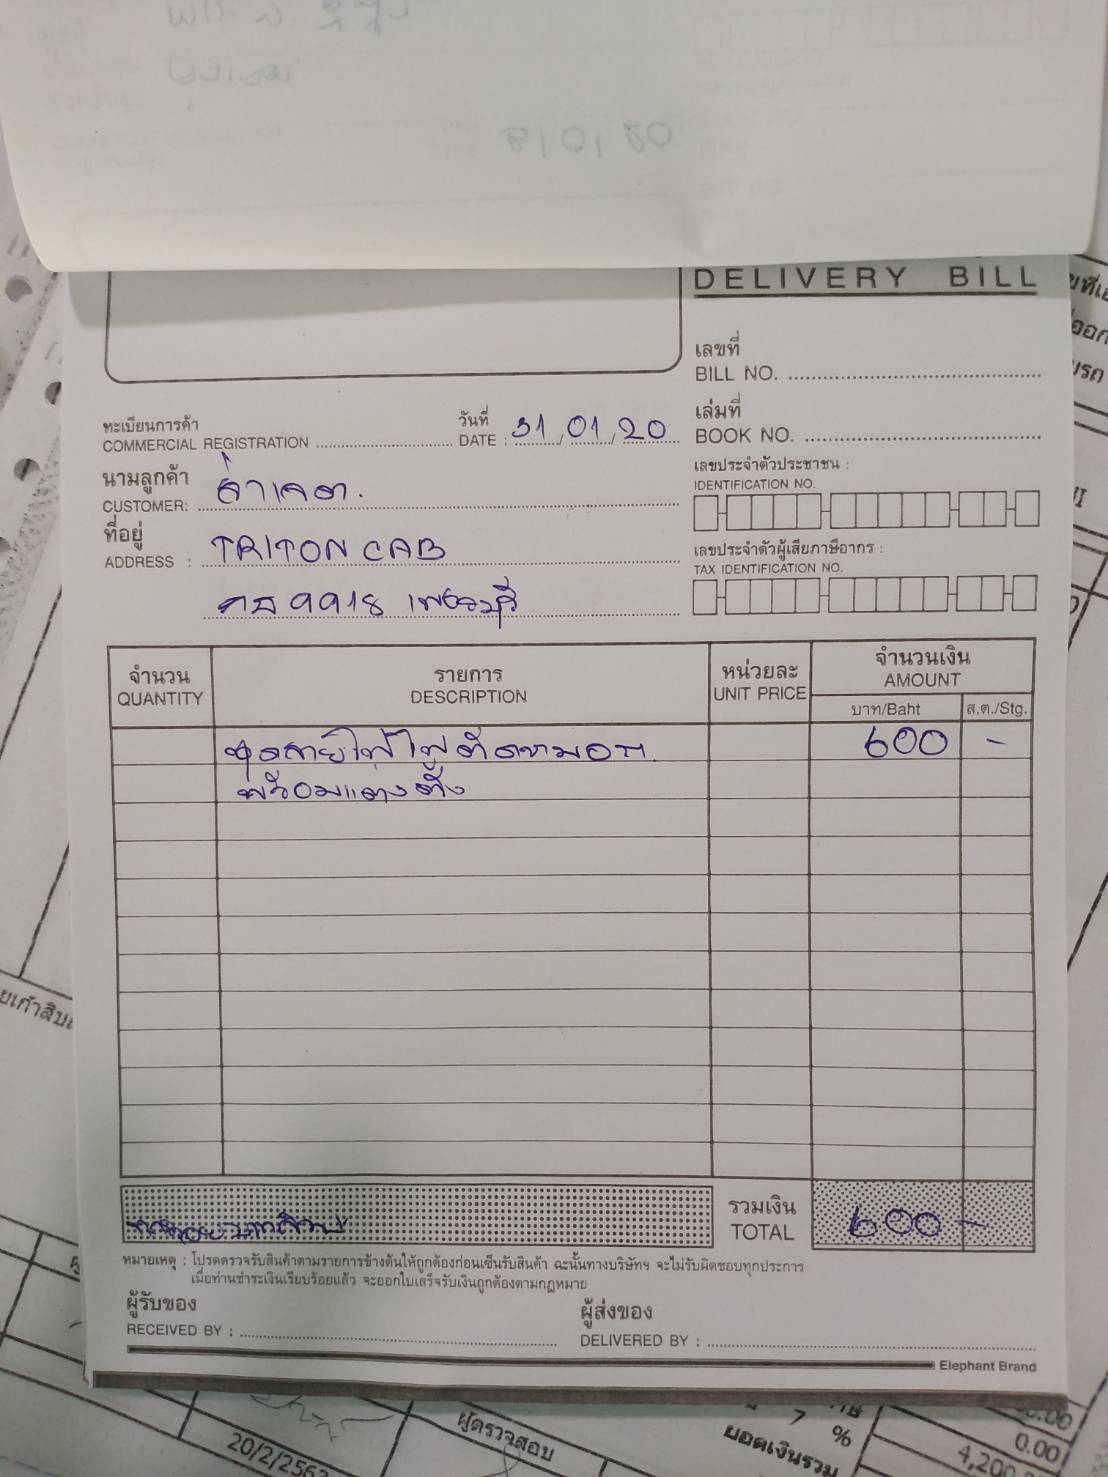 DELIVERY BILL
เลขที่
BILL NO.
ทะเบียนการค้า
COMMERCIAL REGISTRATION
วันที่
DATE : 31,01,20
เล่มที่
BOOK NO.
นามลูกค้า
CUSTOMER:
เลขประจำตัวประชาชน :
IDENTIFICATION NO.
ที่อยู่
ADDRESS : TRITON CAB
เลขประจำตัวผู้เสียภาษีอากร :
TAX IDENTIFICATION NO.
9918 เพชรบุรี
จำนวน
QUANTITY
รายการ
DESCRIPTION
หน่วยละ
UNIT PRICE
จำนวนเงิน
AMOUNT
บาท/Baht
ส.ต./Stg.
ชุดสายไฟไฟตัดหมอก 600 -
พร้อมแต่งตั้ง
รวมเงิน
TOTAL
600 -
หมายเหตุ : โปรดตรวจรับสินค้าตามรายการข้างต้นให้ถูกต้องก่อนเซ็นรับสินค้า ฉะนั้นทางบริษัทฯ จะไม่รับผิดชอบทุกประการ
เมื่อท่านชำระเงินเรียบร้อยแล้ว จะออกใบเสร็จรับเงินถูกต้องตามกฎหมาย
ผู้รับของ
RECEIVED BY :
ผู้ส่งของ
DELIVERED BY :
Elephant Brand
ผู้ตรวจสอบ
7 %
0.00
ยอดเงินรวม